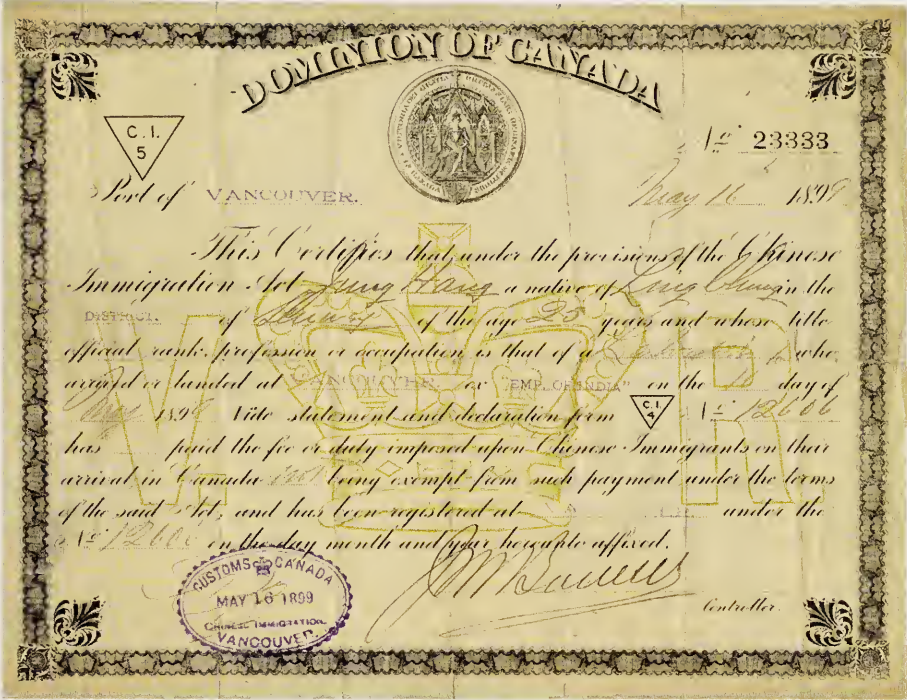 DOMINION OF CANADA
C. I.
5
No 23333
Port of VANCOUVER.
May 16 1899
This Certifies that under the provisions of the Chinese
Immigration Act Jung Hang a native of Ling Chung in the
DISTRICT. of of the age 25 years and whose title
official rank, profession or occupation is that of a who
arrived or landed at VANCOUVER. ex "EMP. OF INDIA" on the day of
May 1899 Vide statement and declaration form C. I. 4 No 12606
has paid the fee or duty imposed upon Chinese Immigrants on their
arrival in Canada not being exempt from such payment under the terms
of the said Act, and has been registered at under the
No 12606 on the day month and year hereunto affixed.
CUSTOMS CANADA
MAY 16 1899
CHINESE IMMIGRATION
VANCOUVER.
Controller.
V R